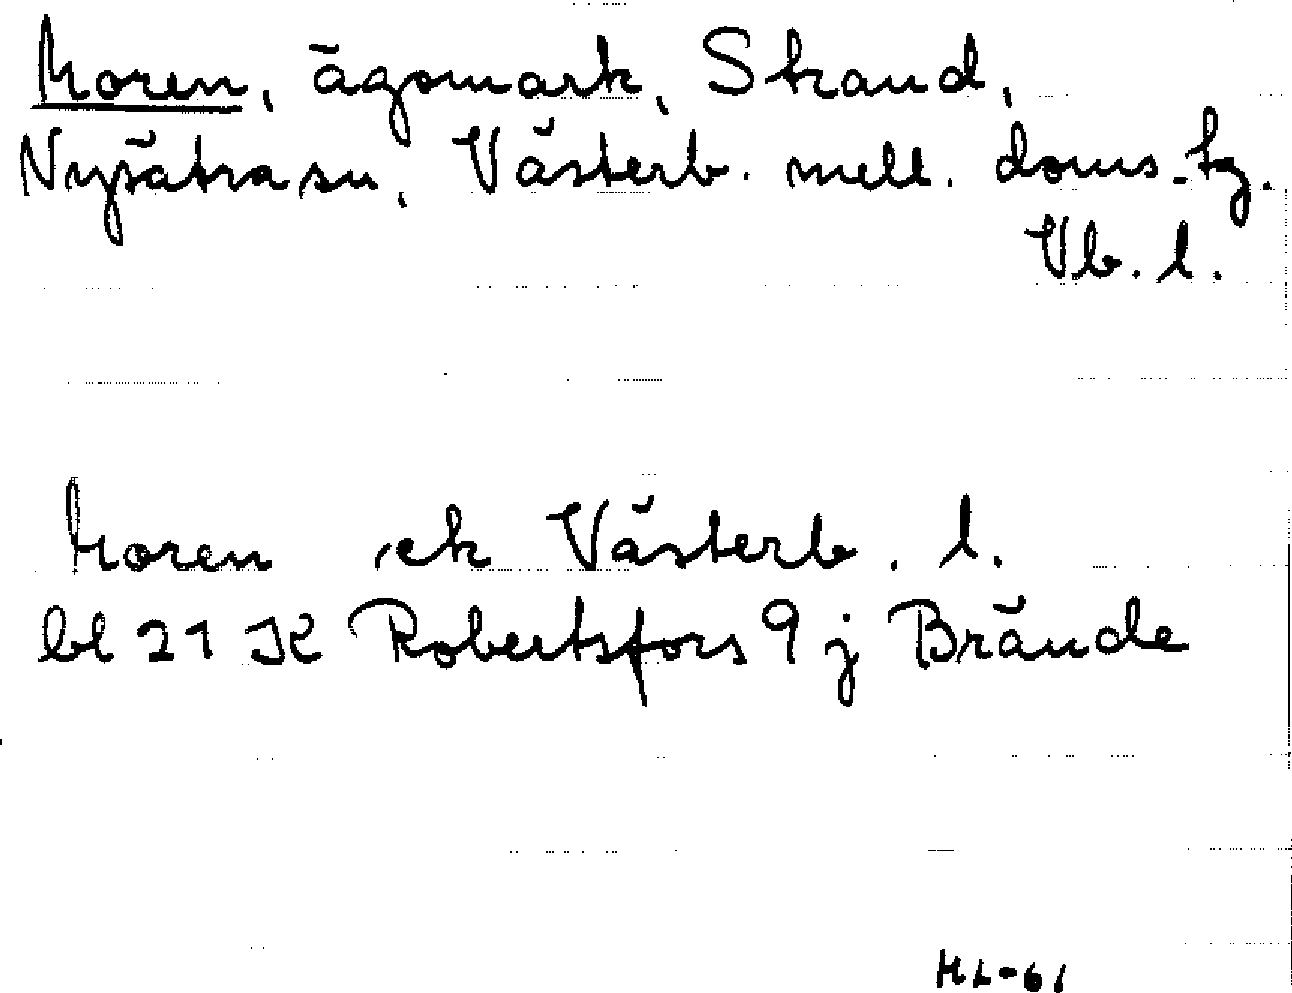 Moren, ägomark, Strand,
Nysätra sn, Västerb. mell. doms.-tg.
Vb. l.
Moren ek Västerb. l.
bl 21 K Robertsfors 9 j Brände
HL-61